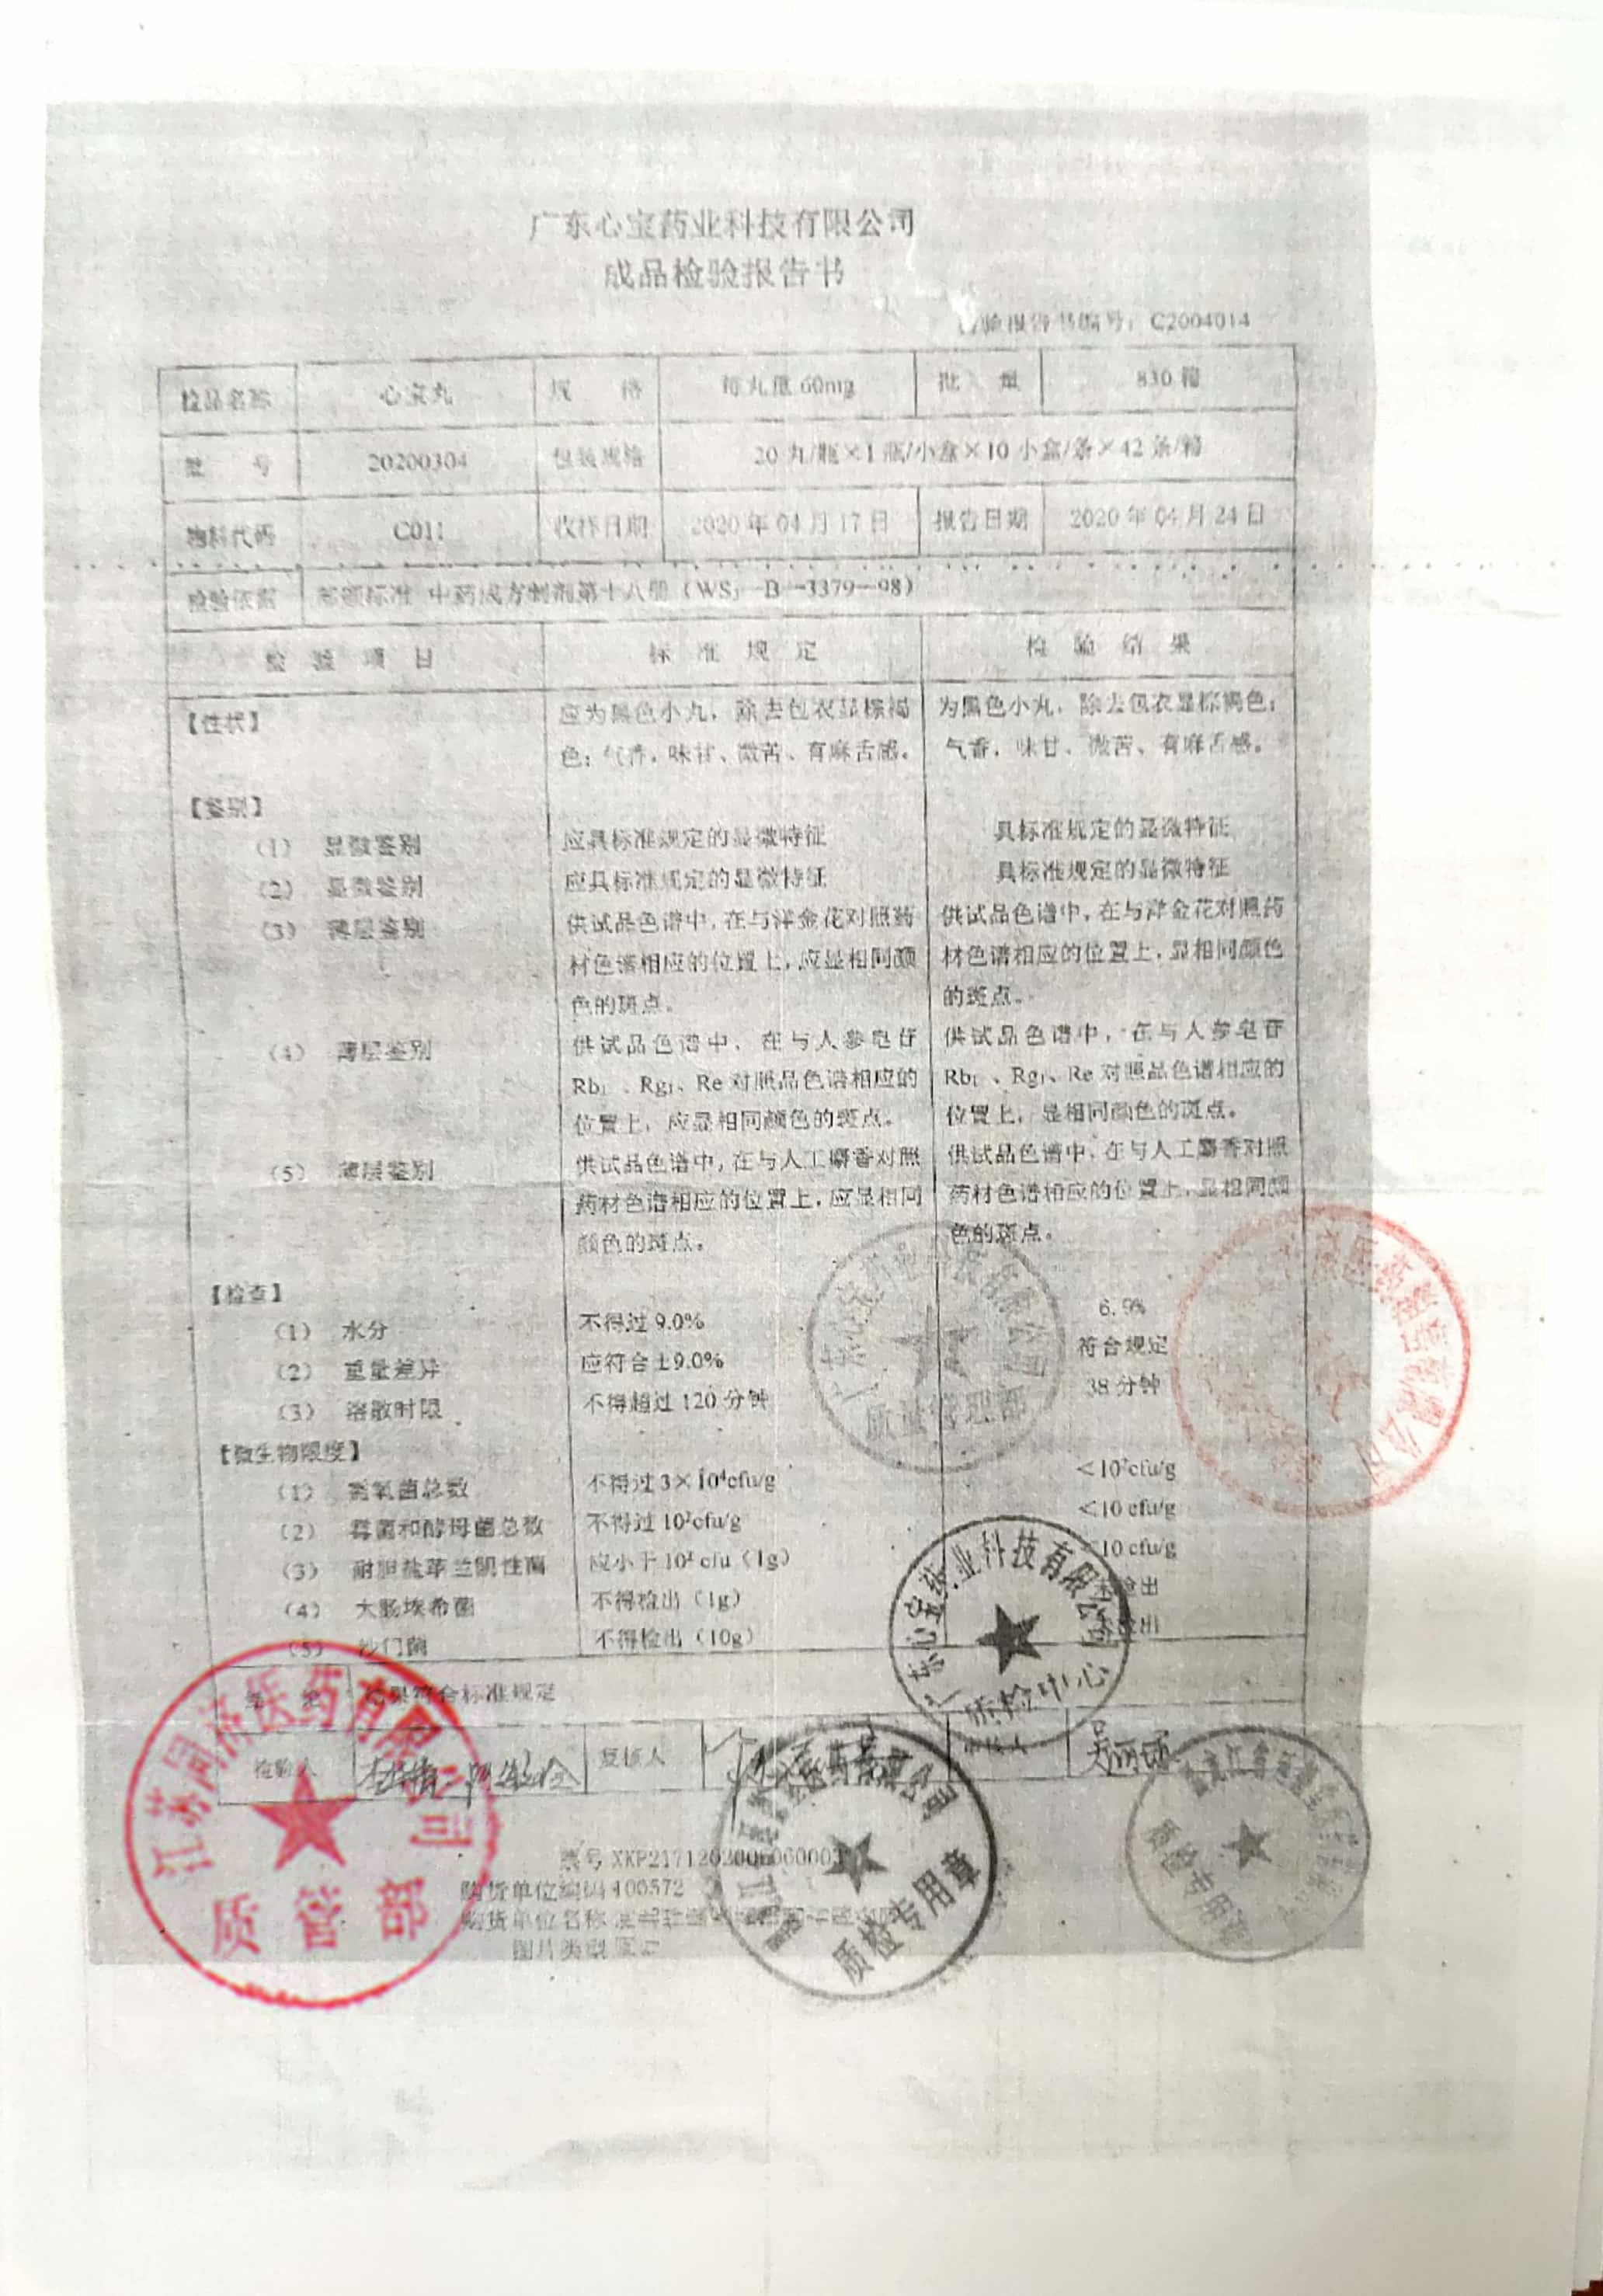 广东心宝药业科技有限公司
成品检验报告书
检验报告书编号：C2004014
检品名称 心宝丸 规 格 每丸重60mg 批 量 830箱
批 号 20200304 包装规格 20丸/瓶×1瓶/小盒×10小盒/条×42条/箱
物料代码 C011 收样日期 2020年04月17日 报告日期 2020年04月24日
检验依据 部颁标准 中药成方制剂第十八册（WS₃—B—3379—98）
检 验 项 目 标 准 规 定 检 验 结 果
【性状】 应为黑色小丸，除去包衣显棕褐 为黑色小丸，除去包衣显棕褐色；
色；气香，味甘、微苦、有麻舌感。 气香，味甘、微苦、有麻舌感。
【鉴别】
（1） 显微鉴别 应具标准规定的显微特征 具标准规定的显微特征
（2） 显微鉴别 应具标准规定的显微特征 具标准规定的显微特征
（3） 薄层鉴别 供试品色谱中，在与洋金花对照药 供试品色谱中，在与洋金花对照药
材色谱相应的位置上，应显相同颜 材色谱相应的位置上，显相同颜色
色的斑点。 的斑点。
（4） 薄层鉴别 供试品色谱中，在与人参皂苷 供试品色谱中，在与人参皂苷
Rb₁、Rg₁、Re对照品色谱相应的 Rb₁、Rg₁、Re对照品色谱相应的
位置上，应显相同颜色的斑点。 位置上，显相同颜色的斑点。
（5） 薄层鉴别 供试品色谱中，在与人工麝香对照 供试品色谱中，在与人工麝香对照
药材色谱相应的位置上，应显相同 药材色谱相应的位置上，显相同颜
颜色的斑点。 色的斑点。
【检查】
（1） 水分 不得过9.0% 6.9%
（2） 重量差异 应符合±9.0% 符合规定
（3） 溶散时限 不得超过120分钟 38分钟
【微生物限度】
（1） 需氧菌总数 不得过3×10⁴cfu/g ＜10²cfu/g
（2） 霉菌和酵母菌总数 不得过10²cfu/g ＜10 cfu/g
（3） 耐胆盐革兰阴性菌 应小于10² cfu（1g） 10 cfu/g
（4） 大肠埃希菌 不得检出（1g） 未检出
（5） 沙门菌 不得检出（10g） 检出
结 论 结果符合标准规定
检验人 复核人 吴丽
票号 XKP2171202006060003
购货单位编码 400572
购货单位名称
图片类型
广东心宝药业科技有限公司
质量管理部
广东心宝药业科技有限公司
质检中心
医药有限公司
质管部
质检专用章
质检专用章